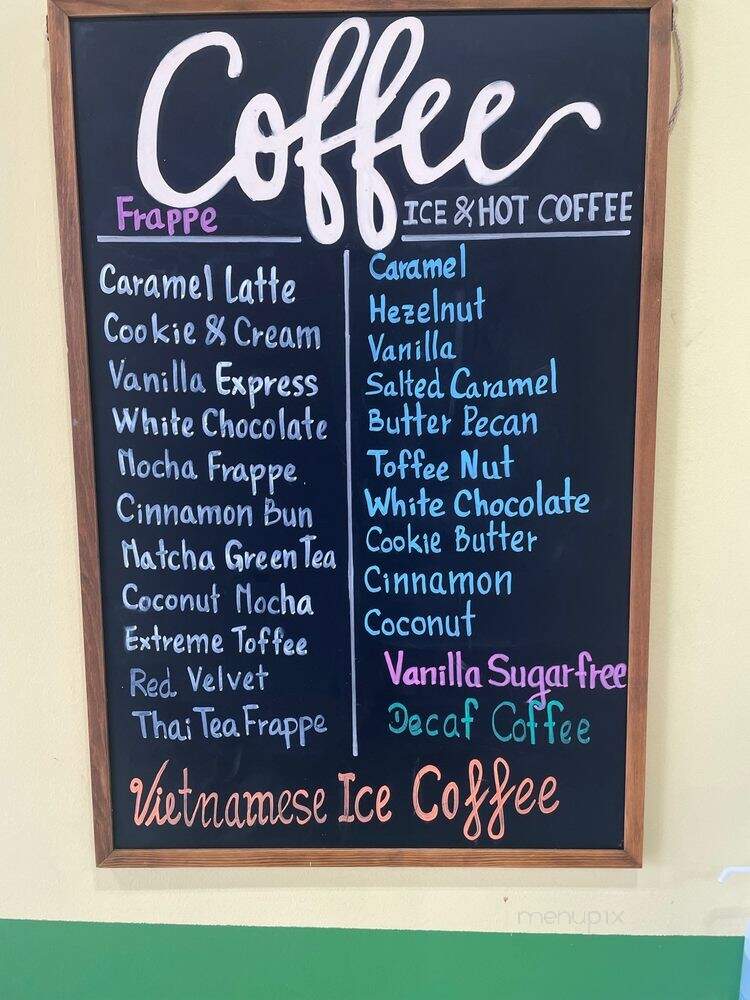 Coffee
Frappe
Caramel Latte
Cookie & Cream
Vanilla Express
White Chocolate
Mocha Frappe
Cinnamon Bun
Matcha Green Tea
Coconut Mocha
Extreme Toffee
Red Velvet
Thai Tea Frappe
ICE & HOT COFFEE
Caramel
Hezelnut
Vanilla
Salted Caramel
Butter Pecan
Toffee Nut
White Chocolate
Cookie Butter
Cinnamon
Coconut
Vanilla Sugarfree
Decaf Coffee
Vietnamese Ice Coffee
menupix